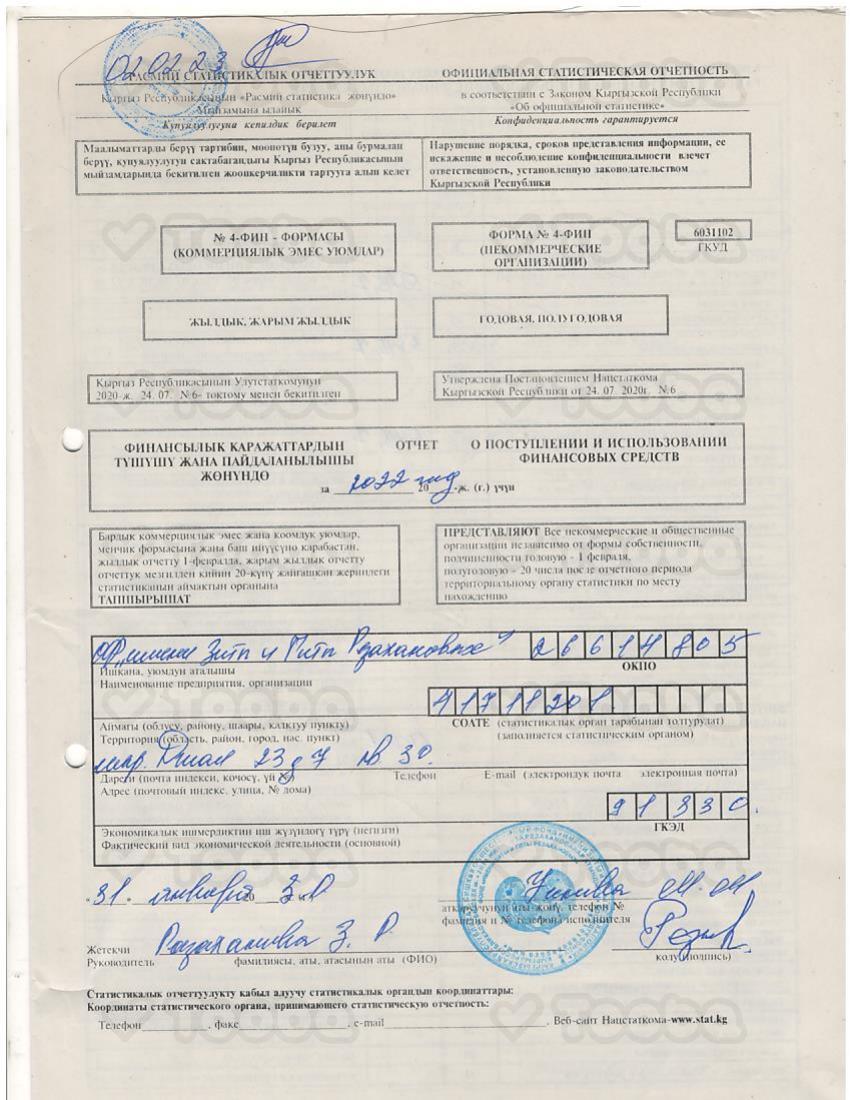 02.02.23
РАСМИЙ СТАТИСТИКАЛЫК ОТЧЕТТУУЛУК
ОФИЦИАЛЬНАЯ СТАТИСТИЧЕСКАЯ ОТЧЕТНОСТЬ
Кыргыз Республикасынын «Расмий статистика жөнүндө»
Мыйзамына ылайык
в соответствии с Законом Кыргызской Республики
«Об официальной статистике»
Купуялуулугуна кепилдик берилет
Конфиденциальность гарантируется
Маалыматтарды берүү тартибин, мөөнөтүн бузуу, аны бурмалап
берүү, купуялуулугун сактабагандыгы Кыргыз Республикасынын
мыйзамдарында бекитилген жоопкерчиликти тартууга алып келет
Нарушение порядка, сроков представления информации, ее
искажение и несоблюдение конфиденциальности влечет
ответственность, установленную законодательством
Кыргызской Республики
№ 4-ФИН - ФОРМАСЫ
(КОММЕРЦИЯЛЫК ЭМЕС УЮМДАР)
ФОРМА № 4-ФИН
(НЕКОММЕРЧЕСКИЕ
ОРГАНИЗАЦИИ)
6031102
ГКУД
ЖЫЛДЫК, ЖАРЫМ ЖЫЛДЫК
ГОДОВАЯ, ПОЛУГОДОВАЯ
Кыргыз Республикасынын Улутстаткомунун
2020-ж. 24. 07. №6- токтому менен бекитилген
Утверждена Постановлением Нацстаткома
Кыргызской Республики от 24. 07. 2020г. №6
ФИНАНСЫЛЫК КАРАЖАТТАРДЫН
ТҮШҮШҮ ЖАНА ПАЙДАЛАНЫЛЫШЫ
ЖӨНҮНДӨ
ОТЧЕТ
О ПОСТУПЛЕНИИ И ИСПОЛЬЗОВАНИИ
ФИНАНСОВЫХ СРЕДСТВ
за 2022 год 20 -ж. (г.) үчүн
Бардык коммерциялык эмес жана коомдук уюмдар,
менчик формасына жана баш ийүүсүнө карабастан,
жылдык отчетту 1-февралда, жарым жылдык отчетту
отчеттук мезгилден кийин 20-күнү жайгашкан жериндеги
статистиканын аймактык органына
ТАПШЫРЫШАТ
ПРЕДСТАВЛЯЮТ Все некоммерческие и общественные
организации независимо от формы собственности,
подчиненности годовую - 1 февраля,
полугодовую - 20 числа после отчетного периода
территориальному органу статистики по месту
нахождению
ОФ „имени Зиты и Гиты Резахановых" 26614805
Ишкана, уюмдун аталышы
ОКПО
Наименование предприятия, организации
41711201
Аймагы (облусу, району, шаары, калктуу пункту)
СОАТЕ (статистикалык орган тарабынан толтурулат)
Территория (область, район, город, нас. пункт)
(заполняется статистическим органом)
мкр. Джал 23 д 7 кв 30.
Дареги (почта индекси, көчөсү, үй №) Телефон E-mail (электрондук почта электронная почта)
Адрес (почтовый индекс, улица, № дома)
91330.
Экономикалык ишмердиктин иш жүзүндөгү түрү (негизги)
ГКЭД
Фактический вид экономической деятельности (основной)
31. января 20
аткаруучунун аты-жөнү, телефон №
фамилия и № телефона исполнителя
Жетекчи
Руководитель
Резаханова З. Р.
фамилиясы, аты, атасынын аты (ФИО)
колу (подпись)
Статистикалык отчеттуулукту кабыл алуучу статистикалык органдын координаттары:
Координаты статистического органа, принимающего статистическую отчетность:
Телефон , факс , e-mail . Веб-сайт Нацстаткома-www.stat.kg